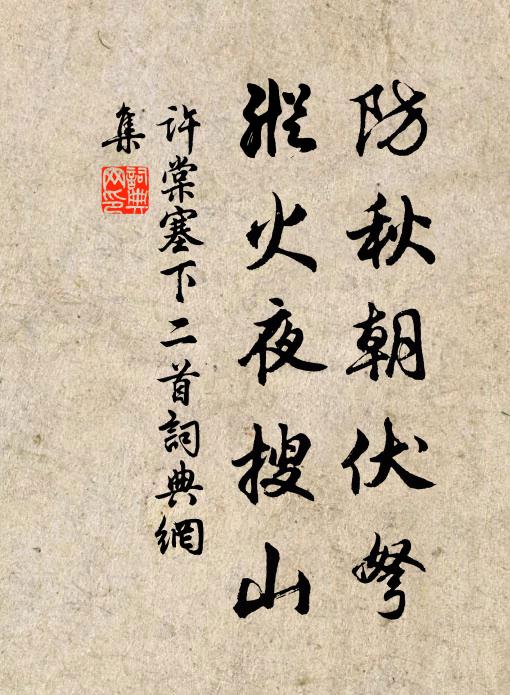 防秋朝伏弩
縱火夜搜山
許棠塞下二首詞典網
集
詞典
网印